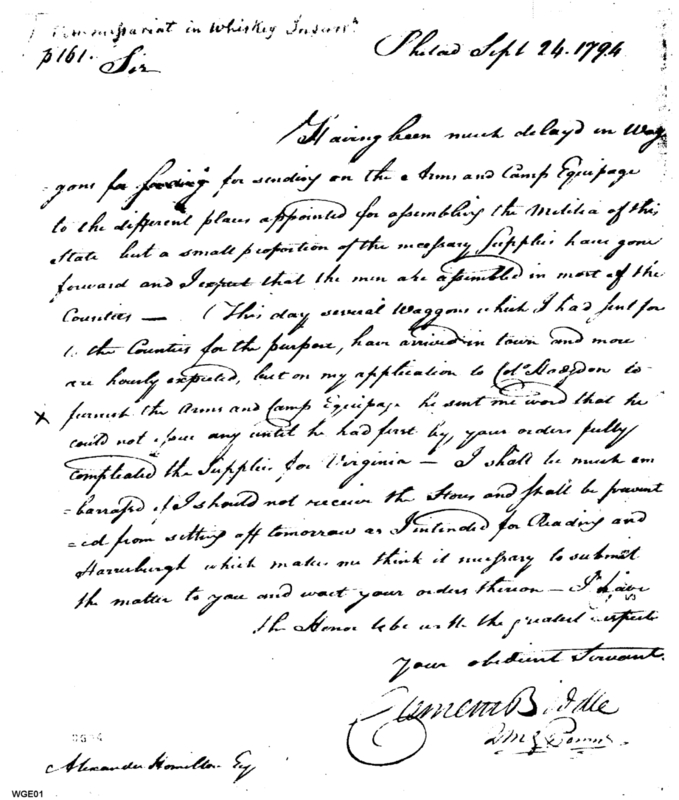 Commissariat in Whiskey Insurn
p161.
Sir
Philad Sept 24. 1794
Having been much delayd in Wag
gons for for sending on the Arms and Camp Equipage
to the different places appointed for assembling the Militia of this
State but a small proportion of the necessary Supplies have gone
forward and I expect that the men are assembled in most of the
Counties — This day several Waggons which I had sent for
to the Counties for the purpose, have arrived in town and more
are hourly expected, but on my application to Colo Hodgdon to
X furnish the Arms and Camp Equipage he sent me word that he
could not issue any until he had first by your orders fully
compleated the Supplies for Virginia — I shall be much em
=barrassed if I should not receive the Stores and shall be prevent
=ed from setting off tomorrow as I intended for Reading and
Harrisburgh which makes me think it necessary to submit
the matter to you and wait your orders thereon — I have
the Honor to be with the greatest respect
Your obedient Servant.
Clement Biddle
QMG Penna
Alexander Hamilton Esq
WGE01